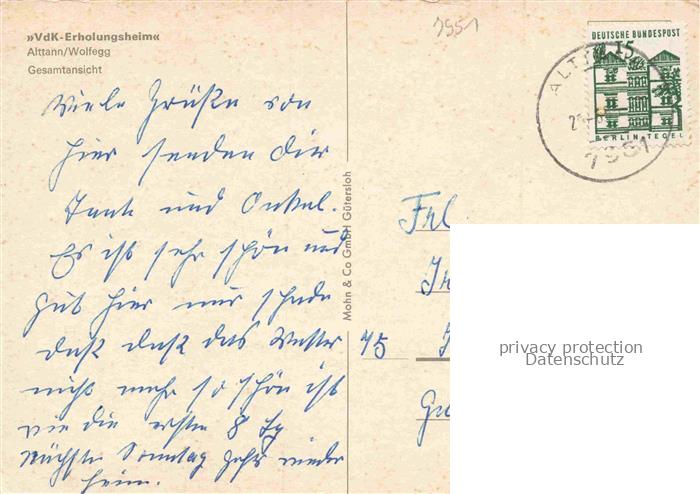 1951
»VdK-Erholungsheim«
Alttann/Wolfegg
Gesamtansicht
DEUTSCHE BUNDESPOST
15
BERLIN-TEGEL
ALTT
7951
Viele Grüße von
hier senden Dir
Tante und Onkel.
Es ist sehr schön und
gut hier nur schade
daß daß das Wetter
nicht mehr so schön ist
wie die ersten 8 Tg
Nächsten Sonntag gehts wieder
heim.
Mohn & Co GmbH Gütersloh
Frl
75
privacy protection
Datenschutz